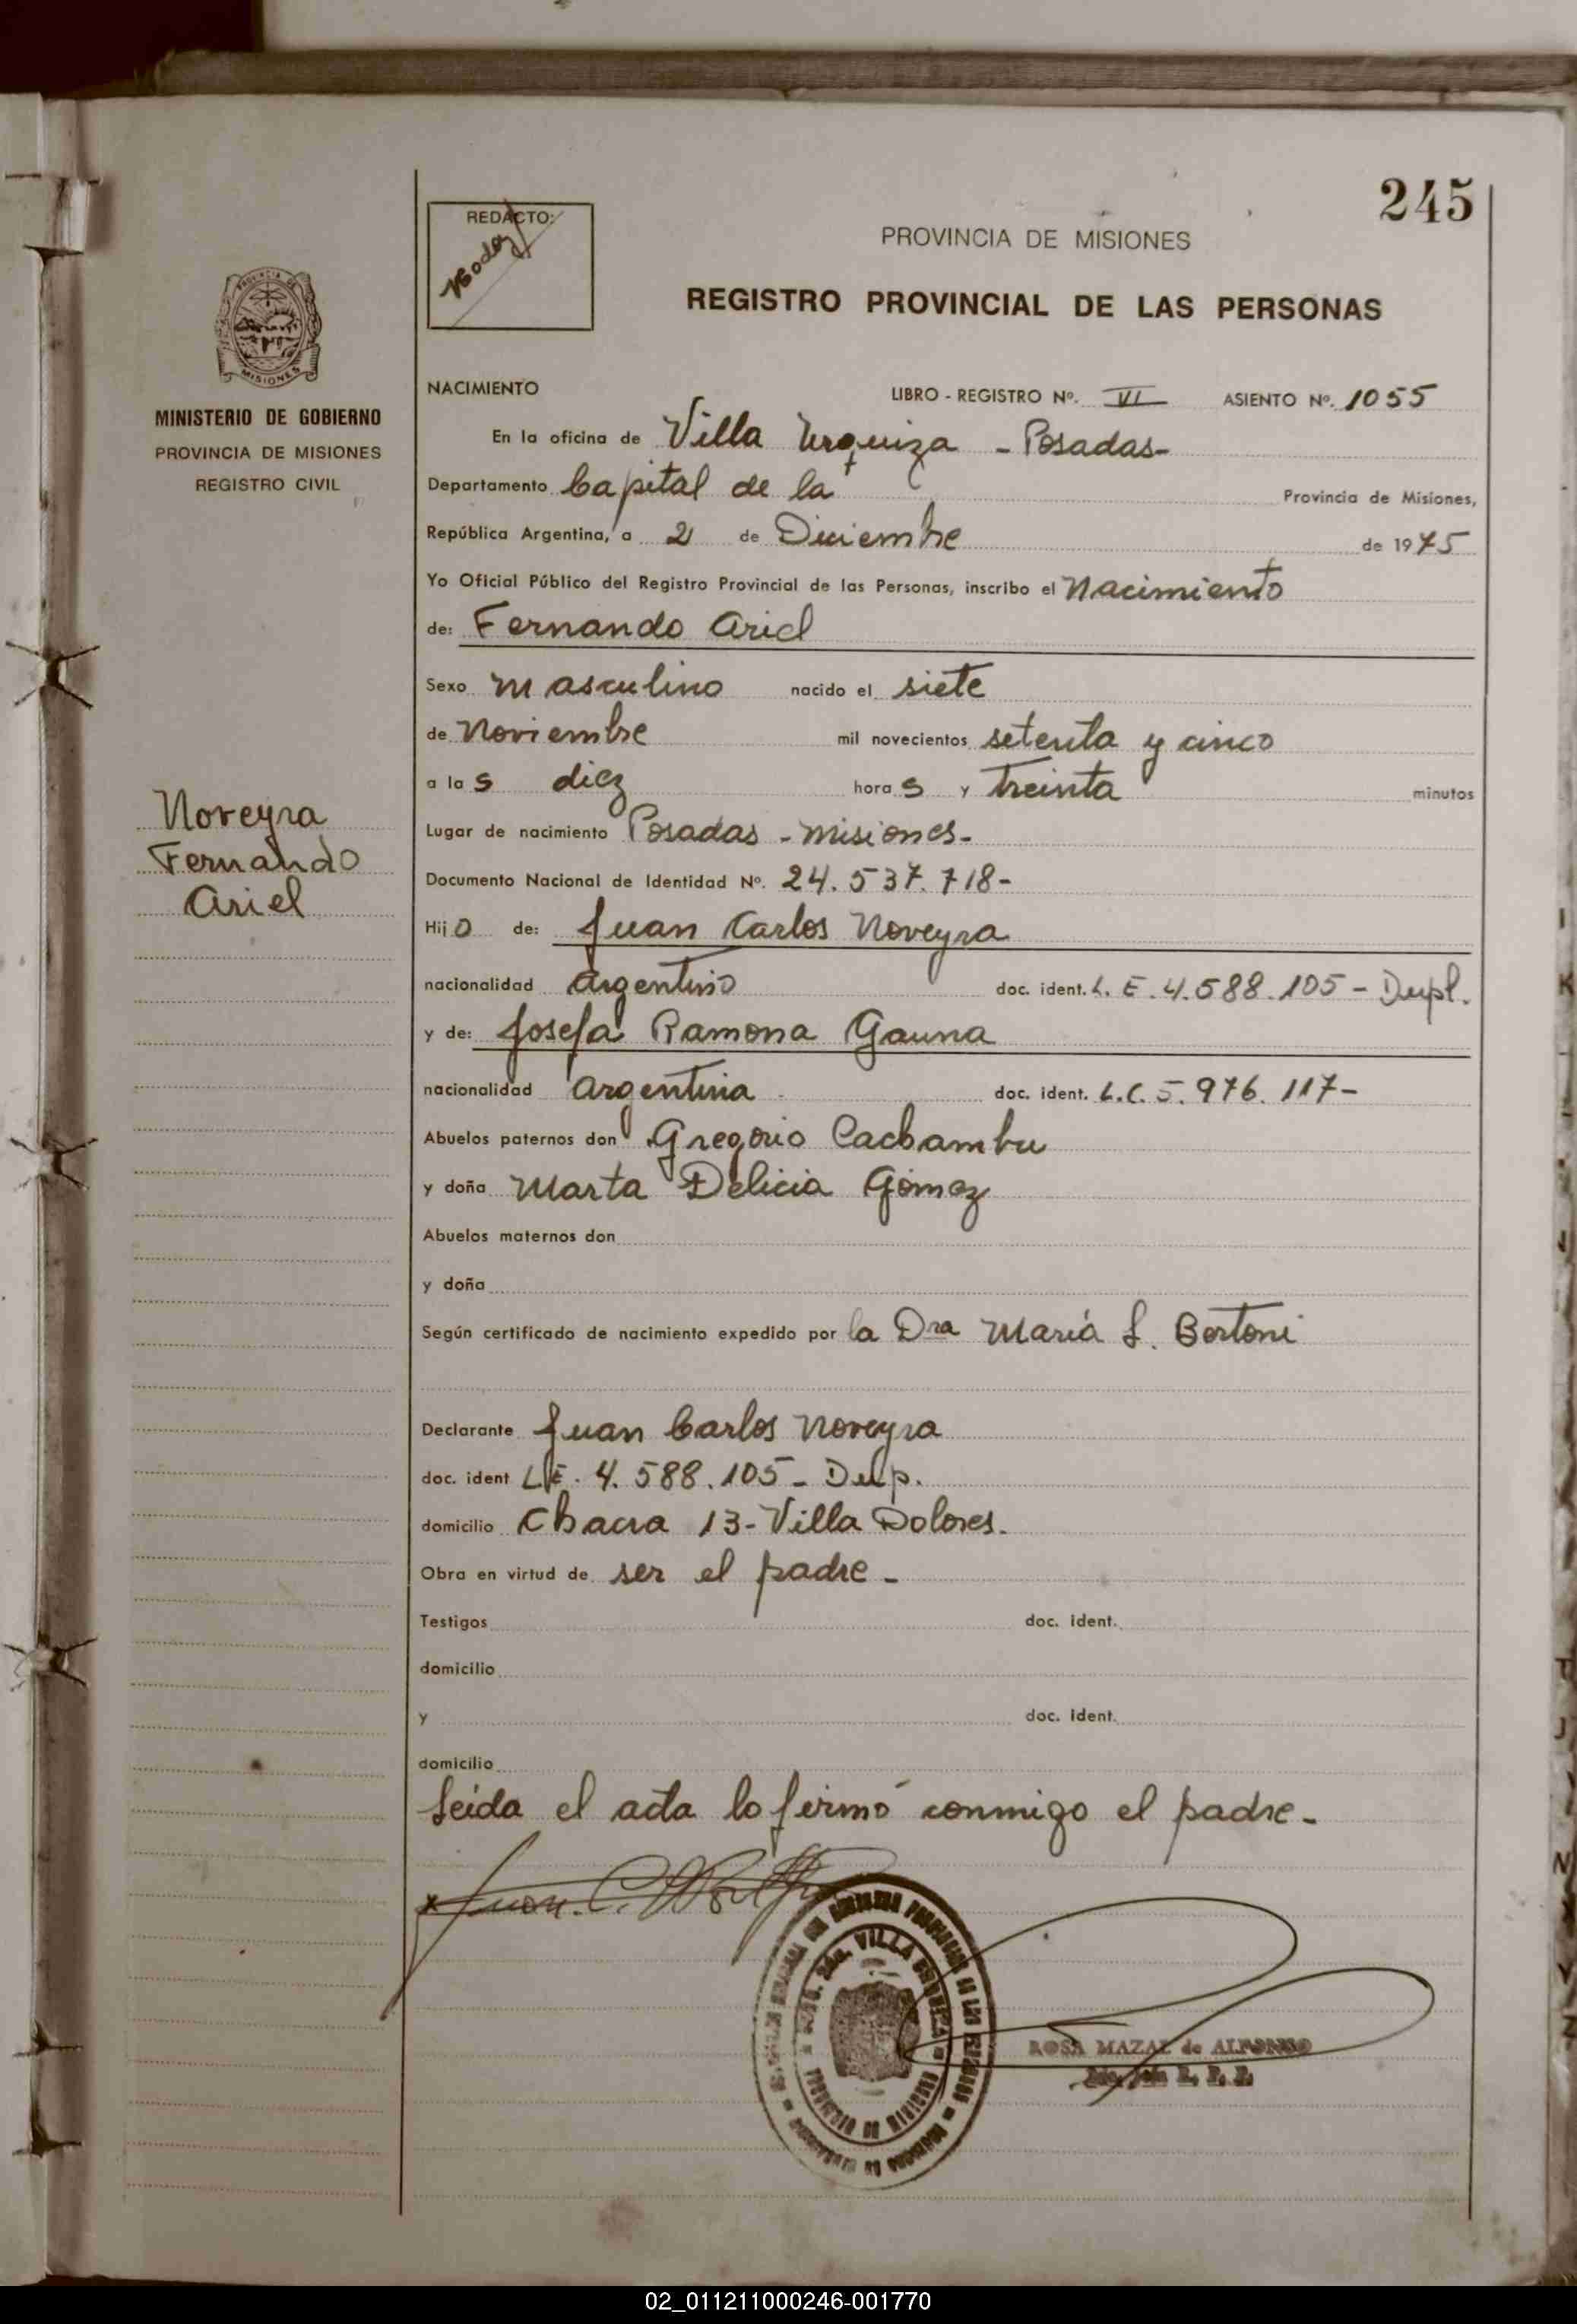 245
REDACTO:
PROVINCIA DE MISIONES
REGISTRO PROVINCIAL DE LAS PERSONAS
MINISTERIO DE GOBIERNO
PROVINCIA DE MISIONES
REGISTRO CIVIL
NACIMIENTO LIBRO - REGISTRO Nº. VI ASIENTO Nº. 1055
En la oficina de Villa Urquiza - Posadas-
Departamento Capital de la Provincia de Misiones,
República Argentina, a 2 de Diciembre de 1975
Yo Oficial Público del Registro Provincial de las Personas, inscribo el Nacimiento
de: Fernando Ariel
Sexo masculino nacido el siete
de Noviembre mil novecientos setenta y cinco
a las diez horas y treinta minutos
Noveyra
Fernando
Ariel
Lugar de nacimiento Posadas - Misiones-
Documento Nacional de Identidad Nº. 24.537.718-
Hijo de: Juan Carlos Noveyra
nacionalidad Argentino doc. ident. L. E. 4.588.105 - Dupl.
y de: Josefa Ramona Gauna
nacionalidad Argentina doc. ident. L.C. 5.976.117-
Abuelos paternos don Gregorio Cachambu
y doña Marta Delicia Gómez
Abuelos maternos don
y doña
Según certificado de nacimiento expedido por la Dra María L. Bertoni
Declarante Juan Carlos Noveyra
doc. ident L.E. 4.588.105 - Dup.
domicilio Chacra 13 - Villa Dolores.
Obra en virtud de ser el padre -
Testigos doc. ident.
domicilio
y doc. ident.
domicilio
Leída el acta lo firmó conmigo el padre -
Juan. C.
VILLA URQUIZA
ROSA MAZAL de ALFONSO
02_011211000246-001770